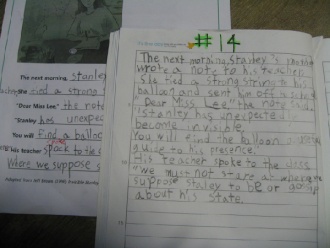 The next morning, stanley
She tied a strong
"Dear Miss Lee," the note
"Stanley has unexpec
You will find a balloo
his teacher spock to the
Where we suppose s
#14
The next morning, Stanley's
wrote a note to his teacher.
She tied a strong string to his
balloon and sent him off to
"Dear Miss Lee," the note said,
"Stanley has unexpected
become invisible.
You will find the balloon a
guide to his presence."
His teacher spoke to the
"We must not stare at where
suppose staley to be or
about his state.